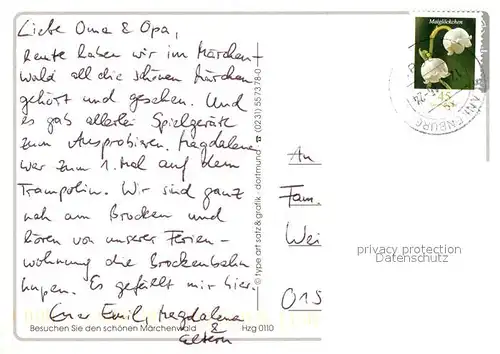 Liebe Oma & Opa,
heute haben wir im Märchen-
wald all die schönen Märchen
gehört und gesehen. Und
es gab allerlei Spielgeräte
zum Ausprobieren. Magdalena
war zum 1. Mal auf dem
Trampolin. Wir sind ganz
nah am Brocken und
hören von unserer Ferien-
wohnung die Brockenbahn
hupen. Es gefällt mir hier.
Euer Emil, Magdalena
& Eltern
Besuchen Sie den schönen Märchenwald
Hzg 0110
© type art satz & grafik · dortmund ☎ (0231) 55 73 78-0
Maiglöckchen
45
An
Fam.
Wei
015
privacy protection
Datenschutz